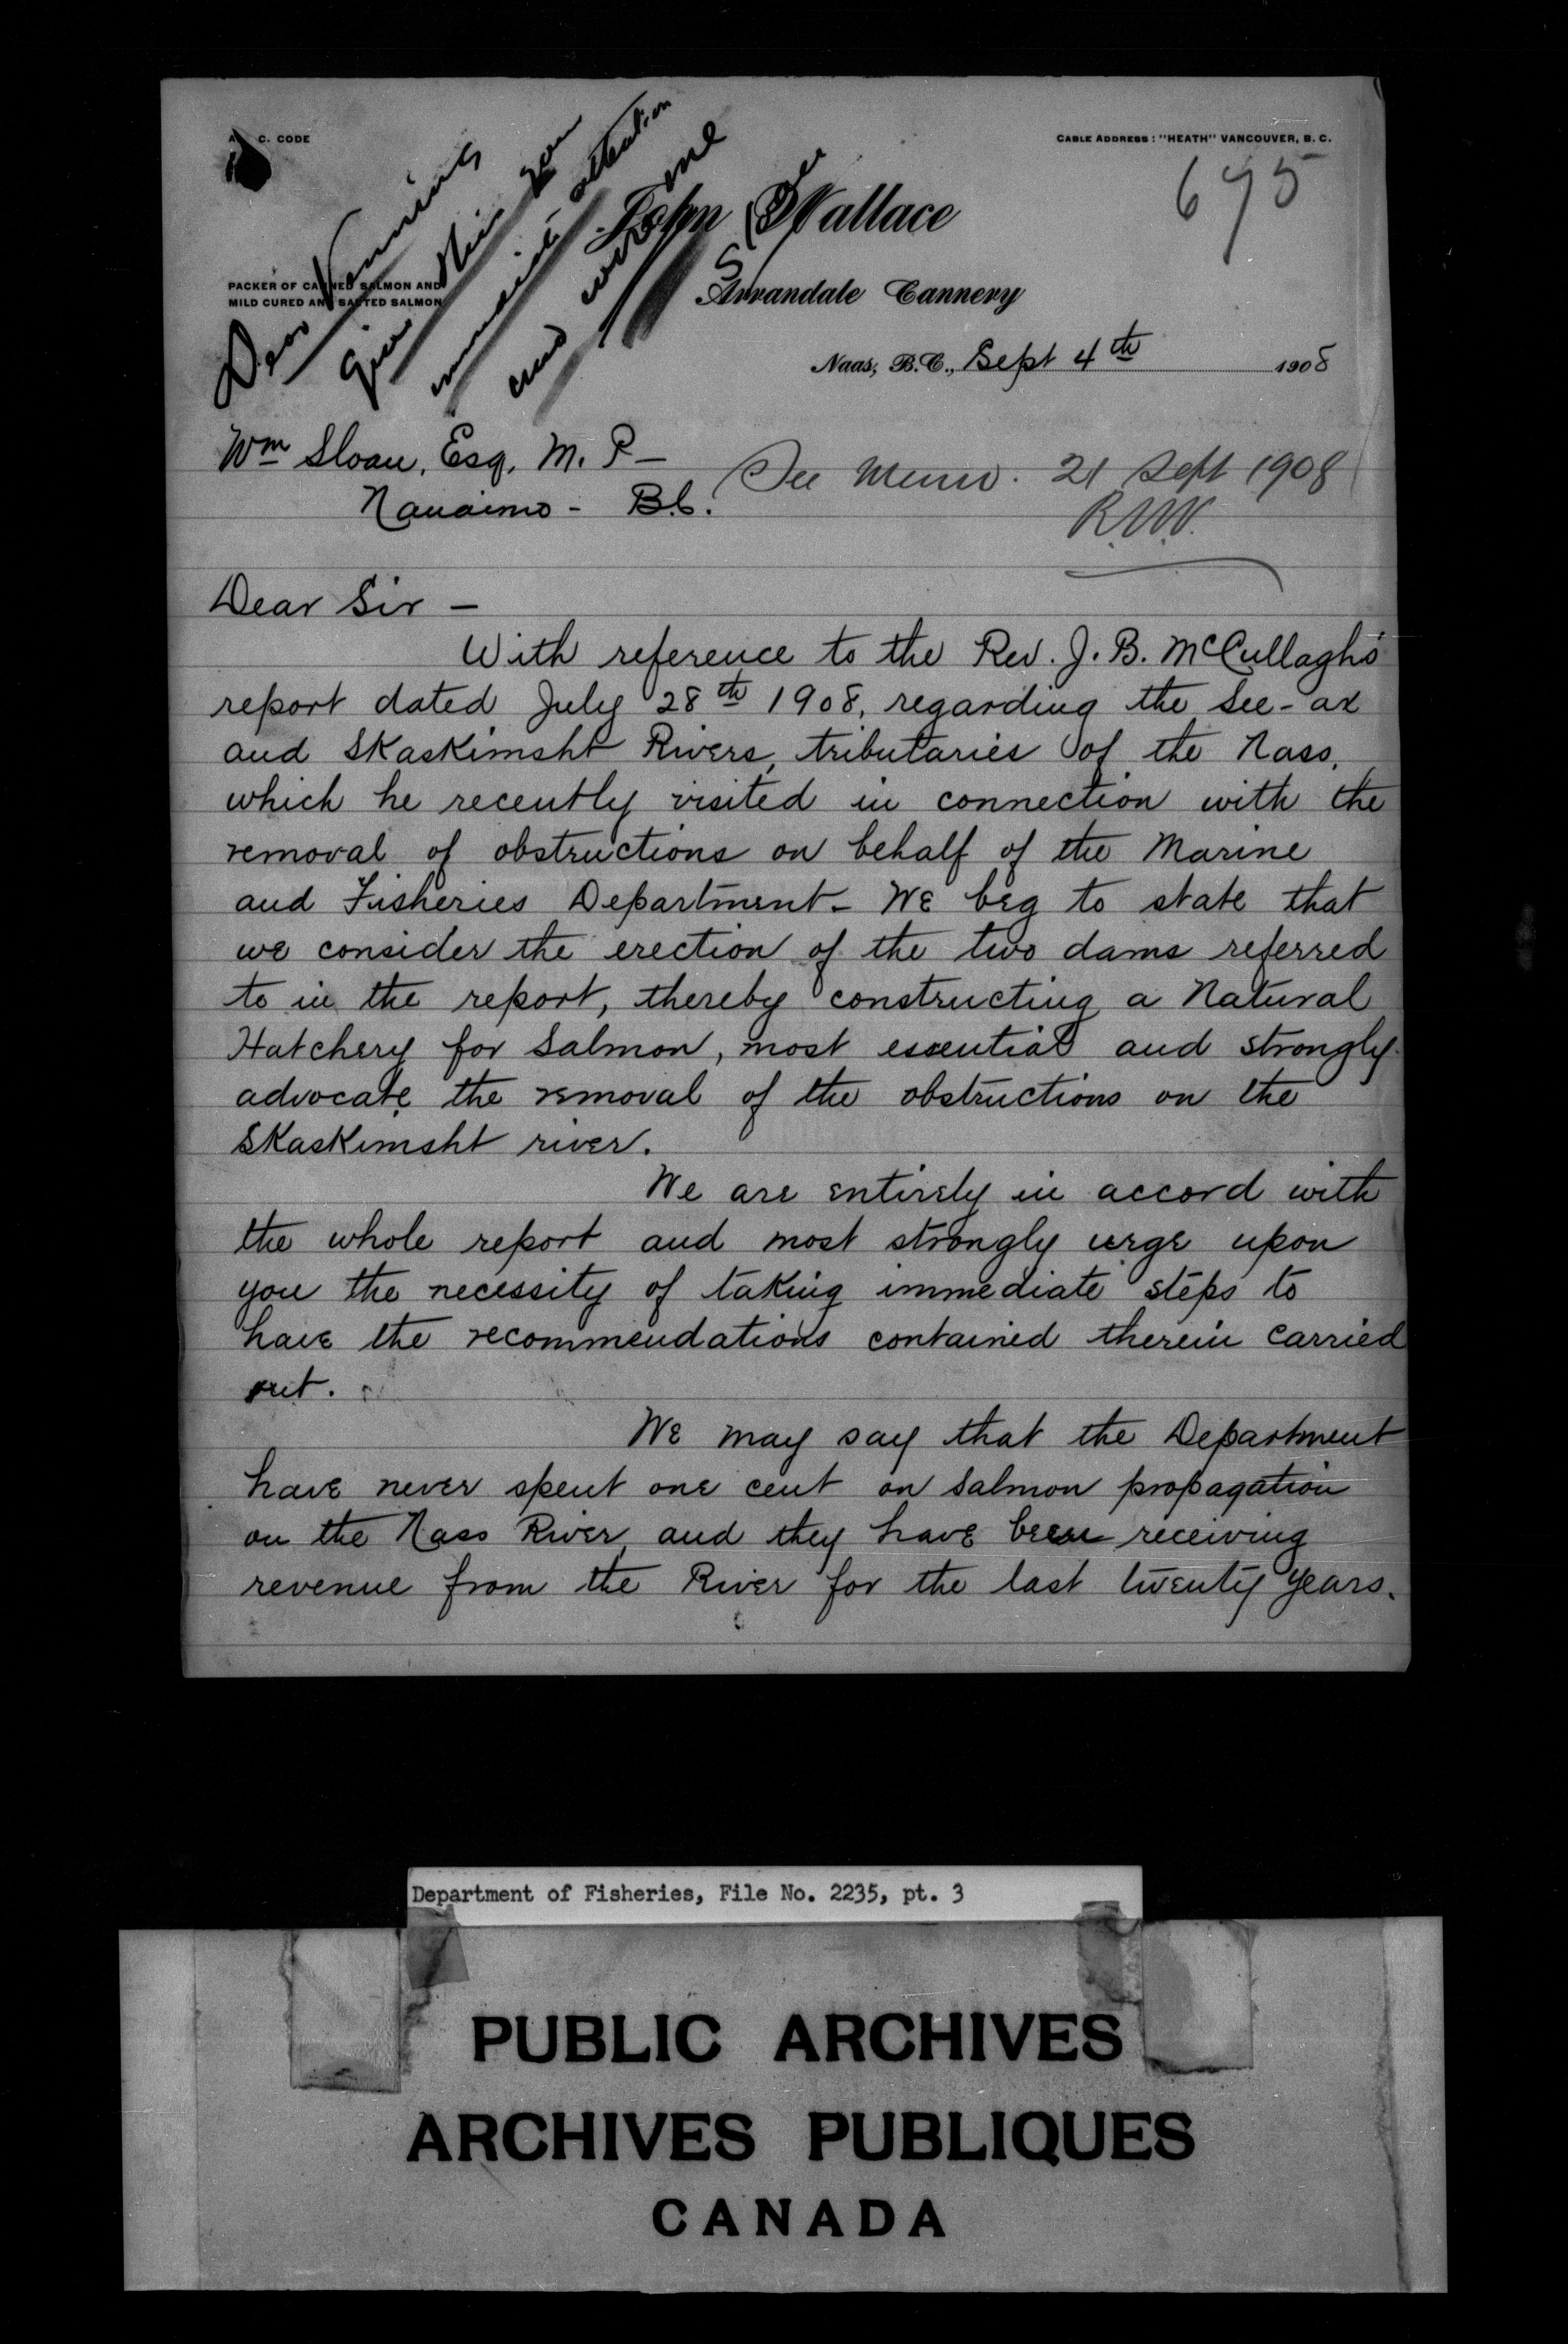 C. CODE
CABLE ADDRESS: "HEATH" VANCOUVER, B. C.
675
Dear Venning
Give this your
immediate attention
and
me
John Wallace
PACKER OF CANNED SALMON AND
MILD CURED AND SALTED SALMON
Arrandale Cannery
Naas, B.C., Sept 4th 1908
Wm Sloan, Esq, M. P—
Nanaimo - B.C.
See Memo. 21 Sept 1908
R.N.V.
Dear Sir —
With reference to the Rev. J. B. McCullagh's
report dated July 28th 1908, regarding the See-ax
and Skaskimsht Rivers, tributaries of the Nass,
which he recently visited in connection with the
removal of obstructions on behalf of the Marine
and Fisheries Department - We beg to state that
we consider the erection of the two dams referred
to in the report, thereby constructing a Natural
Hatchery for Salmon, most essential and strongly
advocate the removal of the obstructions on the
Skaskimsht river.
We are entirely in accord with
the whole report and most strongly urge upon
you the necessity of taking immediate steps to
have the recommendations contained therein carried
out.
We may say that the Department
have never spent one cent on Salmon propagation
on the Nass River, and they have been receiving
revenue from the River for the last twenty years.
Department of Fisheries, File No. 2235, pt. 3
PUBLIC ARCHIVES
ARCHIVES PUBLIQUES
CANADA